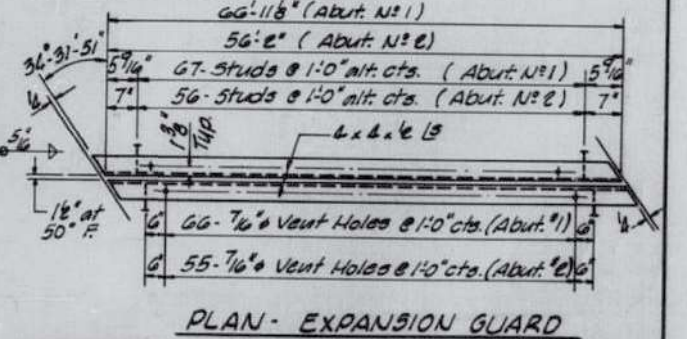 66'-11⅛" (Abut. Nº 1)
56'-2" (Abut. Nº 2)
34°-31'-51"
5 9/16" 67-Studs @ 1'-0" alt. cts. (Abut. Nº 1) 5 9/16"
7" 56-Studs @ 1'-0" alt. cts. (Abut. Nº 2) 7"
¼
5/16
1⅜" Typ.
4 x 4 x ½ Ls
1½" at
50° F.
6" 66-7/16"ø Vent Holes @ 1'-0" cts. (Abut. #1) 6"
¼
6" 55-7/16"ø Vent Holes @ 1'-0" cts. (Abut. #2) 6"
PLAN - EXPANSION GUARD